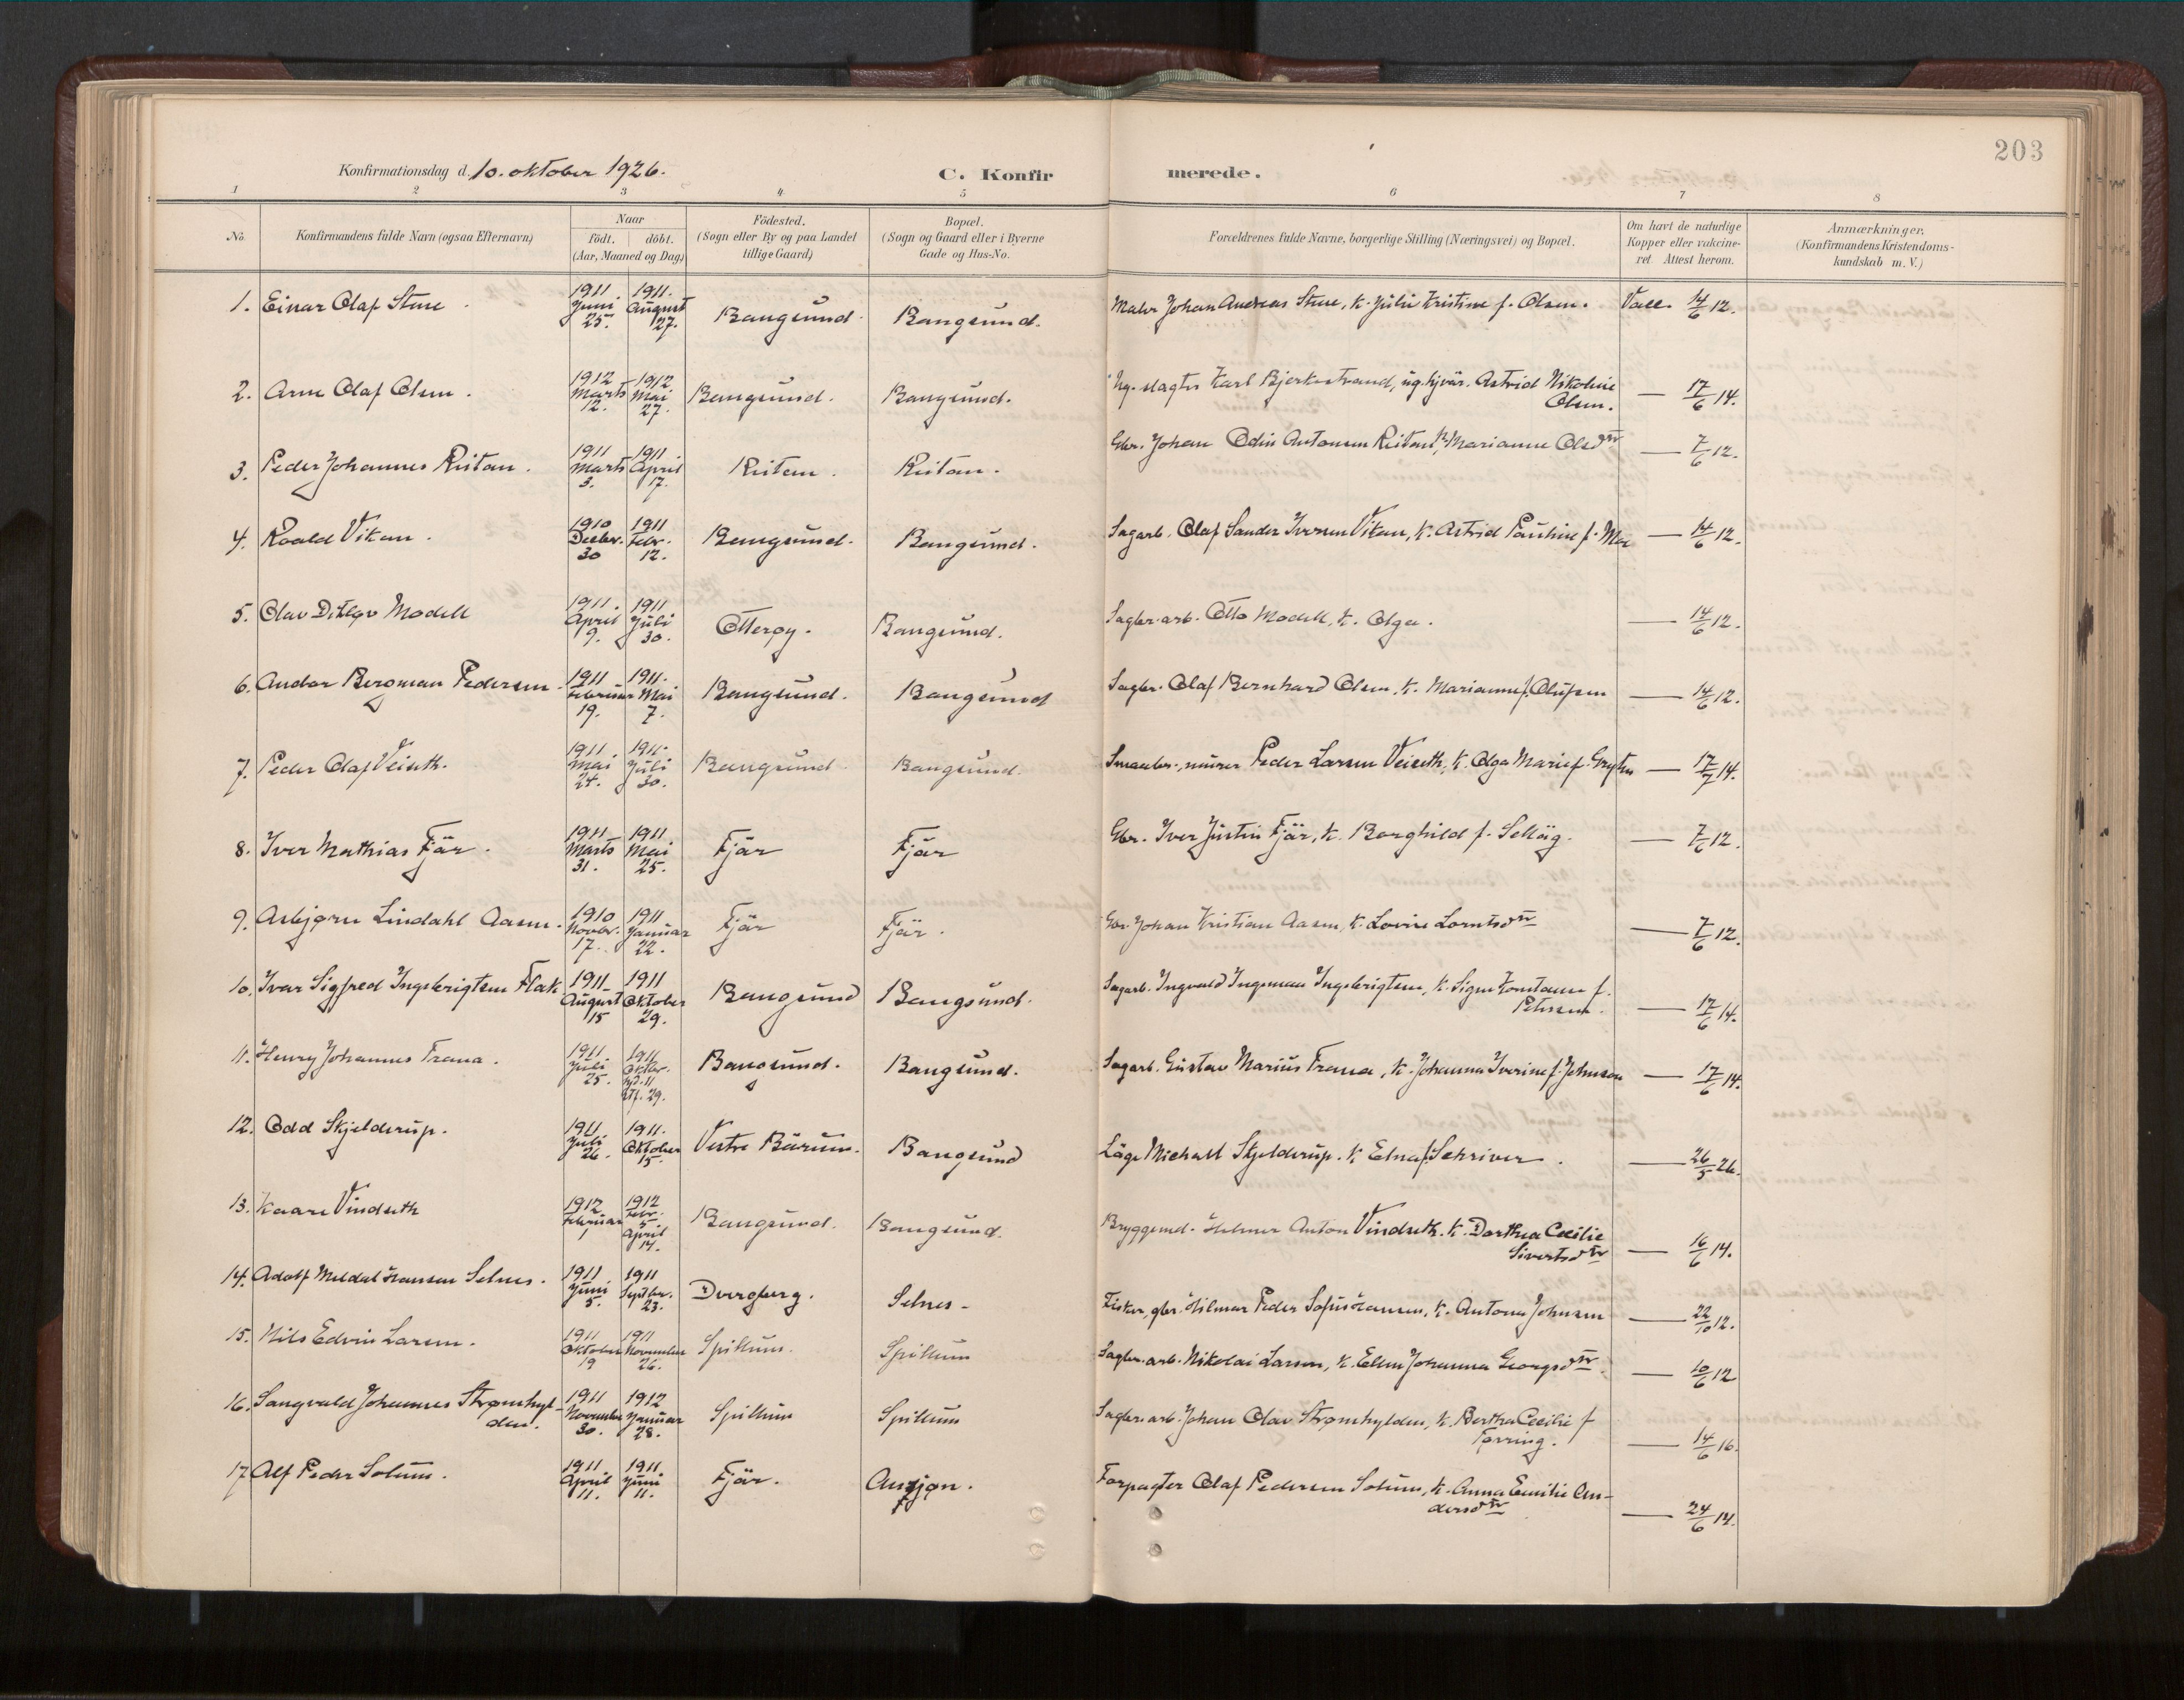 203
Konfirmationsdag d. 10. oktober 1926.
C. Konfirmerede.
1 2 3 4 5 6 7 8
No. Konfirmandens fulde Navn (ogsaa Efternavn) Naar födt. döbt. (Aar, Maaned og Dag) Födested. (Sogn eller By og paa Landet tillige Gaard) Bopæl. (Sogn og Gaard eller i Byerne Gade og Hus-No. Forældrenes fulde Navne, borgerlige Stilling (Næringsvei) og Bopæl. Om havt de naturlige Kopper eller vakcineret Attest herom. Anmærkninger. (Konfirmandens Kristendomskundskab m. V.)
1. Einar Olaf Stene. 1911 Juni 25. 1911. August 27. Bangsund. Bangsund. Maler Johan Andreas Stene, k. Julie Kristine f. Olsen. Vacc. 14/6 12.
2. Arne Olaf Olsen. 1912 Marts 12. 1912 Mai 27. Bangsund. Bangsund. Ug. slagter Karl Bjerkestrand, ug. Astrid Nikoline Olsen. — 17/6 14.
3. Peder Johannes Reitan. 1911 Marts 3. 1911 April 17. Reitan. Reitan. Gbr. Johan Odin Antonsen Reitan, k. Marianne Olsdtr — 7/6 12.
4. Roald Vikan. 1910 Decbr. 30 1911 Febr. 12. Bangsund. Bangsund. Sagarb. Olaf Sander Iversen Vikan, k. Astrid Pauline f. Moe — 14/6 12.
5. Olav Ditlev Modell 1911. April 9. 1911 Juli 30. Otterøy. Bangsund. Sagbr. arb. Otto Modell, k. Olga. — 14/6 12.
6. Andor Bergman Pedersen. 1911 Februar 19. 1911. Mai 7. Bangsund. Bangsund Sagbr. Olaf Bernhard Olsen, k. Marianne f. Olufsen — 14/6 12.
7. Peder Olaf Veiseth. 1911 Mai 24. 1911. Juli 30. Bangsund. Bangsund. Smaabr., murer Peder Larsen Veiseth, k. Olga Marie f. Gryten — 17/7 14.
8. Iver Mathias Fjär. 1911 Marts 31. 1911 Mai 25. Fjär Fjär Gbr. Iver Justin Fjär, k. Borghild f. Selläg. — 7/6 12.
9. Asbjørn Lindahl Aasen. 1910 Novbr. 17. 1911 Januar 22. Fjär Fjär. Gbr. Johan Kristian Aasen, k. Lovise Lorntsdtr — 7/6 12.
10. Ivar Sigfred Ingebrigtsen Flak 1911 August 15 1911 Oktober 29. Bangsund Bangsund. Sagarb. Ingvald Ingeman Ingebrigtsen, k. Signe Konstanse f. Petersen. — 17/6 14.
11. Henry Johannes Frana. 1911 Juli 25. 1911 Oktbr. 29. Bangsund. Bangsund. Sagarb. Gustav Marius Frana, k. Johanna Iverine f. Johnsen — 17/6 14.
12. Odd Skjelderup. 1911 Juli 26. 1911. Oktober 15. Vestre Bärum. Bangsund Läge Michael Skjelderup. k. Edna f. Schriver. — 26/5 26.
13. Kaare Vindseth 1912 Februar 1 1912 Febr. 5. April 14. Bangsund. Bangsund. Bryggemd. Helmer Anton Vindseth. k. Dorthea Cecilie Sivertsdtr — 16/6 14.
14. Adolf Meldal Hansen Selnes. 1911 Juni 5. 1911 Septbr. 23. Dvergberg. Selnes. Fisker, gbr. Hilmar Peder Sofus Hansen, k. Antona Johnsen — 22/10 12.
15. Nils Edvin Larsen. 1911 Oktober 19 1911 November 26. Spillum. Spillum Sagbr. arb. Nikolai Larsen, k. Ellen Johanna Georgsdtr. — 10/6 12
16. Sangvald Johannes Strømhylden. 1911 November 30. 1912 Januar 28. Spillum Spillum Sagbr. arb. Johan Olav Strømhylden, k. Bertha Cecilie f Tørring. — 14/6 16.
17 Alf Peder Solum. 1911 April 11. 1911 Juni 11. Fjär. Ausjøn. Forpagter Olaf Pedersen Solum, k. Anna Emilie Andersdtr — 24/6 14.